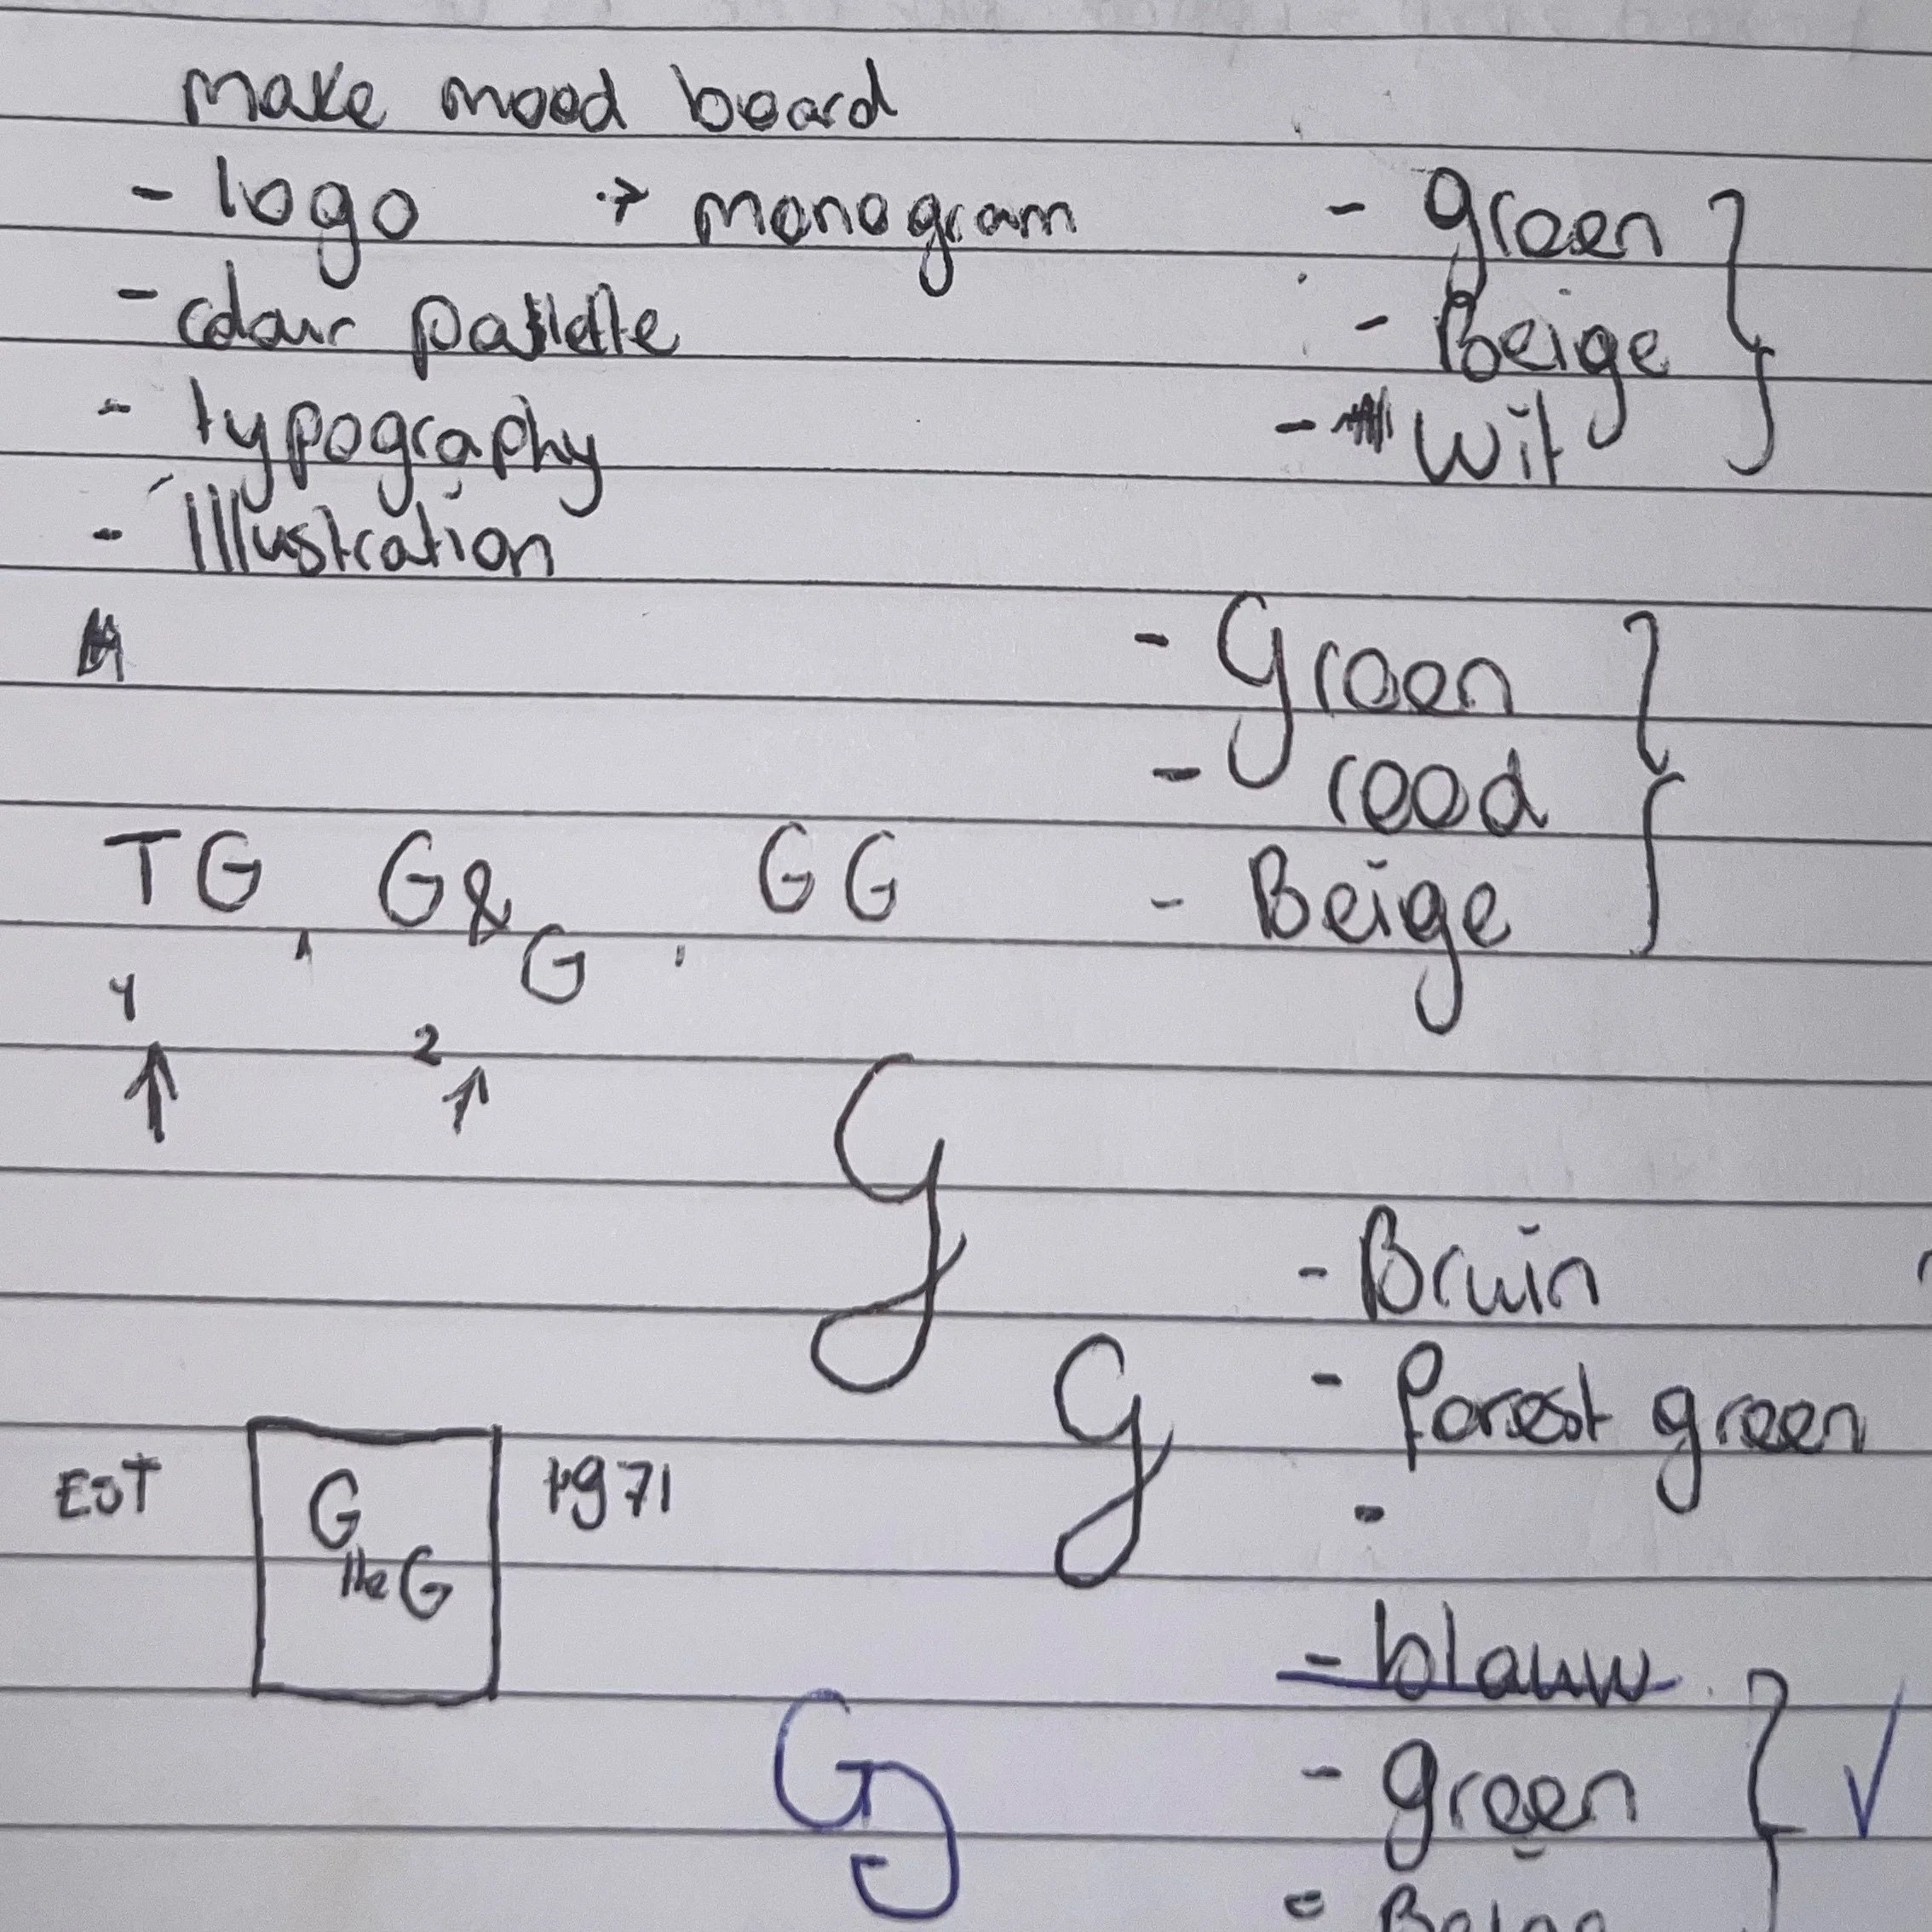 make mood board
- logo → monogram
- colour palette
- typography
- Illustration
- groen
- Beige
- wit
- Groen
- rood
- Beige
TG, G&G, GG
1
2
G
G
- Bruin
- forest green
-
EST G the G 1971
- blauw
- groen
- Beige
GG